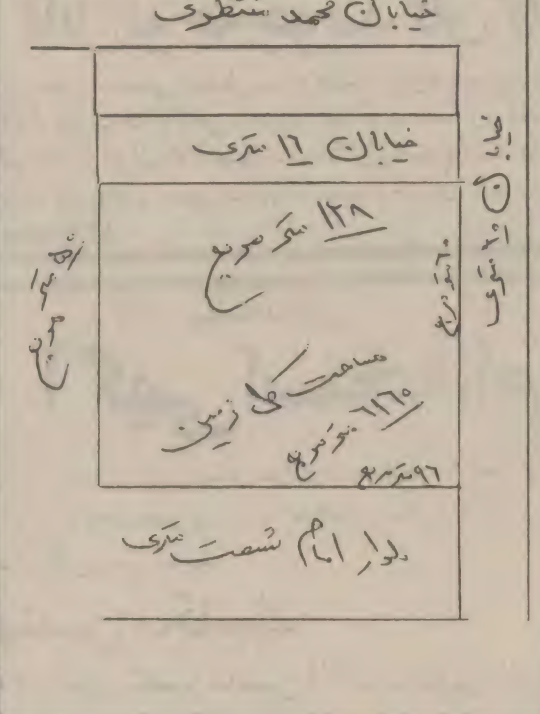 خیابان محمد منتظری
خیابان ١٦ متری
١٢٨ متر مربع
مساحت کل زمین
٦١٦٠ متر مربع
٩٦ متر مربع
بلوار امام شصت متری
٦٠ متر مربع
خیابان ٢٠ متری
متر مربع